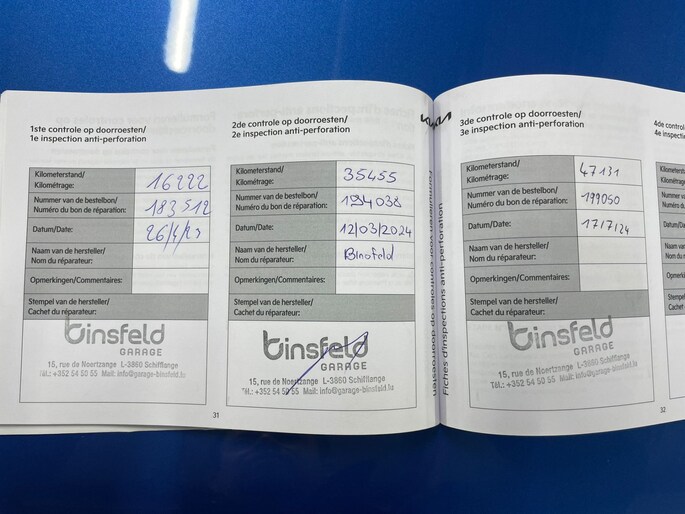 1ste controle op doorroesten/
1e inspection anti-perforation
Kilometerstand/
Kilométrage:
16222
Nummer van de bestelbon/
Numéro du bon de réparation:
183512
Datum/Date:
26/4/23
Naam van de hersteller/
Nom du réparateur:
Opmerkingen/Commentaires:
Stempel van de hersteller/
Cachet du réparateur:
binsfeld
GARAGE
15, rue de Noertzange L-3860 Schifflange
Tél.: +352 54 50 55 Mail: info@garage-binsfeld.lu
31
2de controle op doorroesten/
2e inspection anti-perforation
Kilometerstand/
Kilométrage:
35455
Nummer van de bestelbon/
Numéro du bon de réparation:
194038
Datum/Date:
12/03/2024
Naam van de hersteller/
Nom du réparateur:
Binsfeld
Opmerkingen/Commentaires:
Stempel van de hersteller/
Cachet du réparateur:
binsfeld
GARAGE
15, rue de Noertzange L-3860 Schifflange
Tél.: +352 54 50 55 Mail: info@garage-binsfeld.lu
Formulieren voor controles op doorroesten
Fiches d'inspections anti-perforation
3de controle op doorroesten/
3e inspection anti-perforation
Kilometerstand/
Kilométrage:
47131
Nummer van de bestelbon/
Numéro du bon de réparation:
199050
Datum/Date:
17/7/24
Naam van de hersteller/
Nom du réparateur:
Opmerkingen/Commentaires:
Stempel van de hersteller/
Cachet du réparateur:
binsfeld
GARAGE
15, rue de Noertzange L-3860 Schifflange
Tél.: +352 54 50 55 Mail: info@garage-binsfeld.lu
32
4de contro
4e inspect